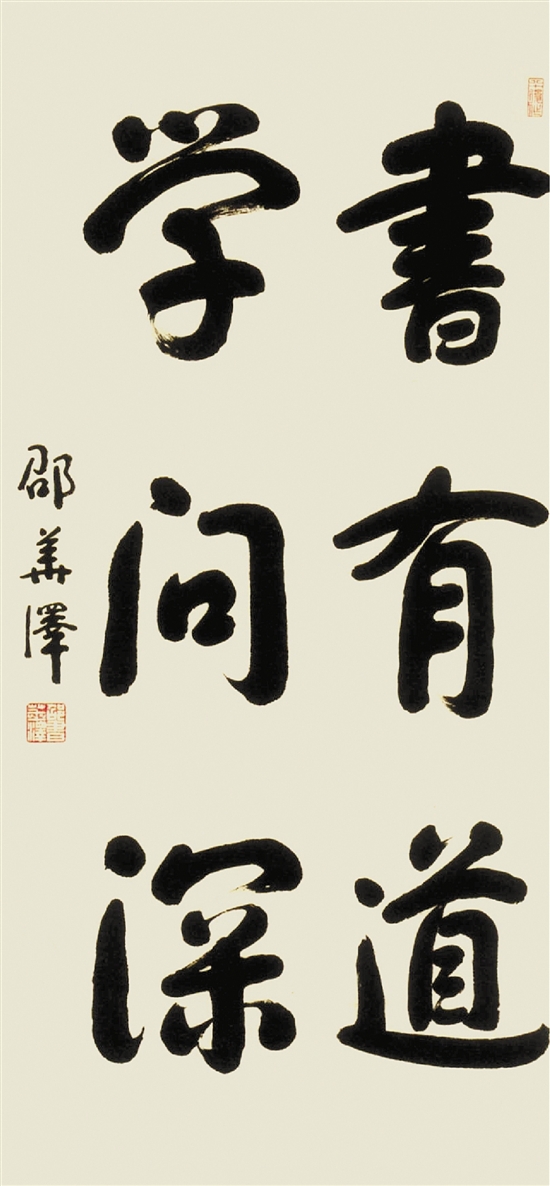 書有道
学问深
邵華澤